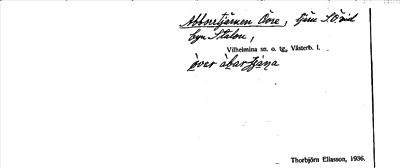 Abborrtjärnen Övre, tjärn S.O. om
byn Stalon,
Vilhelmina sn. o. tg., Västerb. l.
över àbartjána
Thorbjörn Eliasson, 1936.